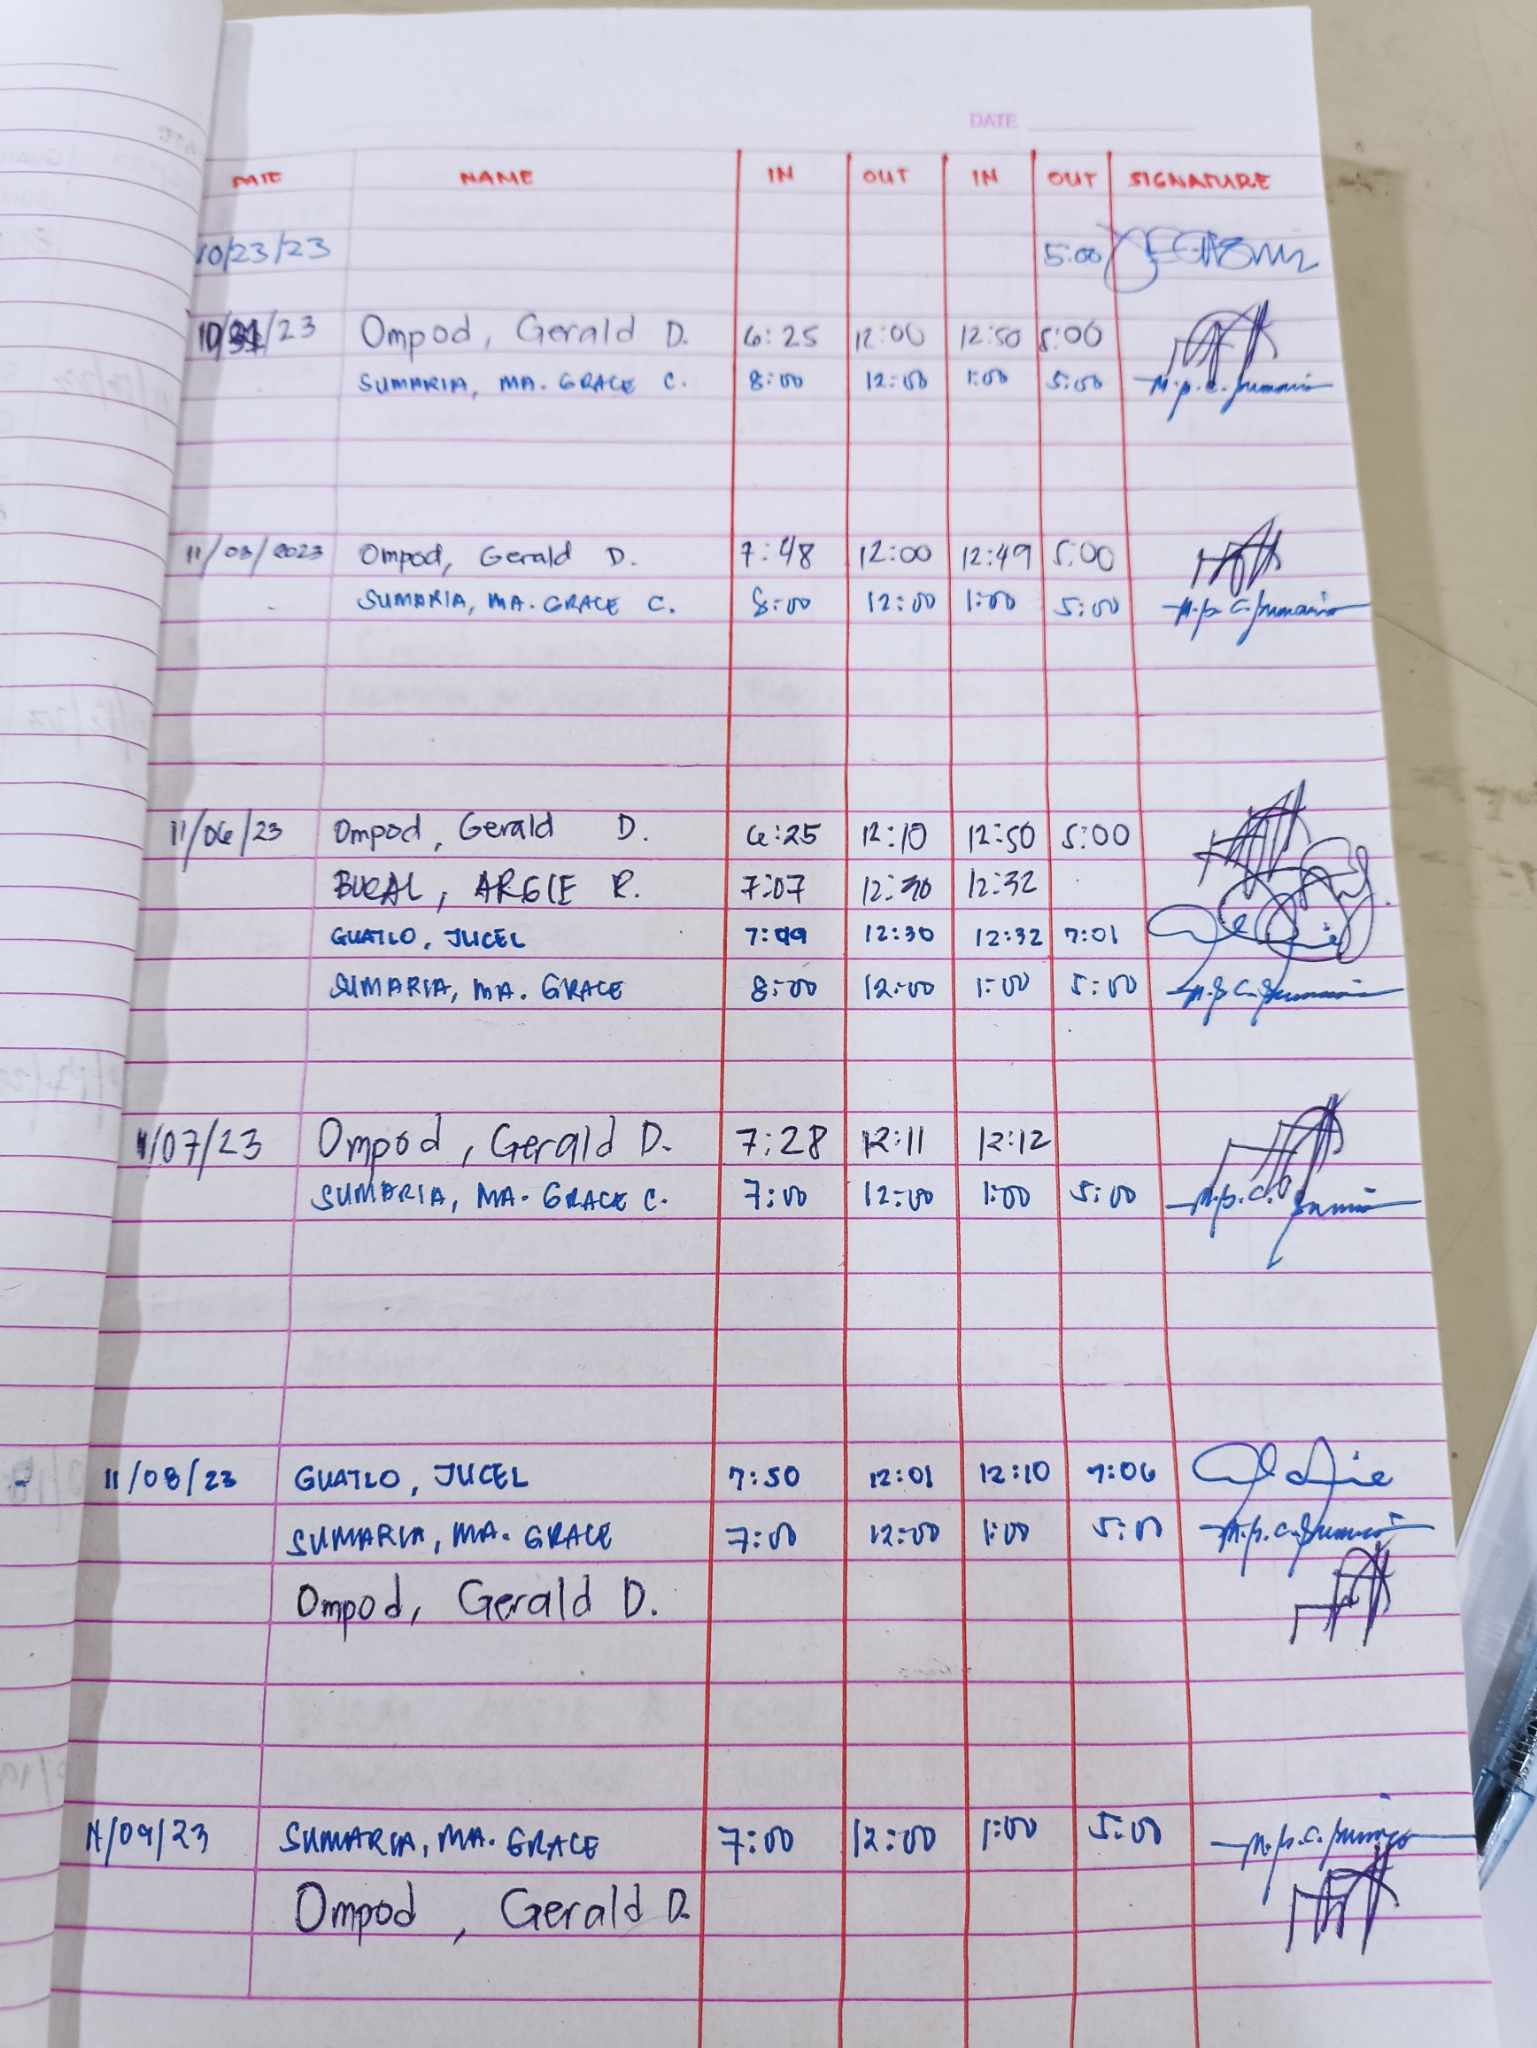 DATE
DATE NAME IN OUT IN OUT SIGNATURE
10/23/23 5:00
10/31/23 Ompod, Gerald D. 6:25 12:00 12:50 5:00
SUMARIA, MA. GRACE C. 8:00 12:00 1:00 5:00
11/03/2023 Ompod, Gerald D. 7:48 12:00 12:49 5:00
SUMARIA, MA. GRACE C. 8:00 12:00 1:00 5:00
11/06/23 Ompod, Gerald D. 6:25 12:10 12:50 5:00
BUCAL, ARGIE R. 7:07 12:30 12:32
GUATLO, JUCEL 7:09 12:30 12:32 7:01
SUMARIA, MA. GRACE 8:00 12:00 1:00 5:00
11/07/23 Ompod, Gerald D. 7:28 12:11 12:12
SUMARIA, MA. GRACE C. 7:00 12:00 1:00 5:00
11/08/23 GUATLO, JUCEL 7:50 12:01 12:10 7:06
SUMARIA, MA. GRACE 7:00 12:00 1:00 5:00
Ompod, Gerald D.
11/09/23 SUMARIA, MA. GRACE 7:00 12:00 1:00 5:00
Ompod, Gerald D.